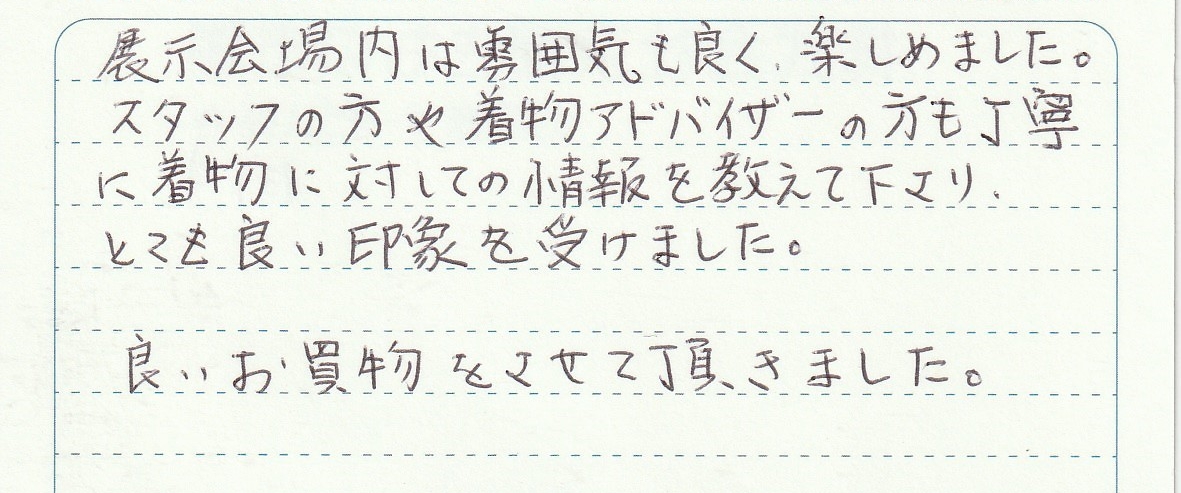 展示会場内は雰囲気も良く、楽しめました。
スタッフの方や着物アドバイザーの方も丁寧
に着物に対しての情報を教えて下さり、
とても良い印象を受けました。
良いお買物をさせて頂きました。